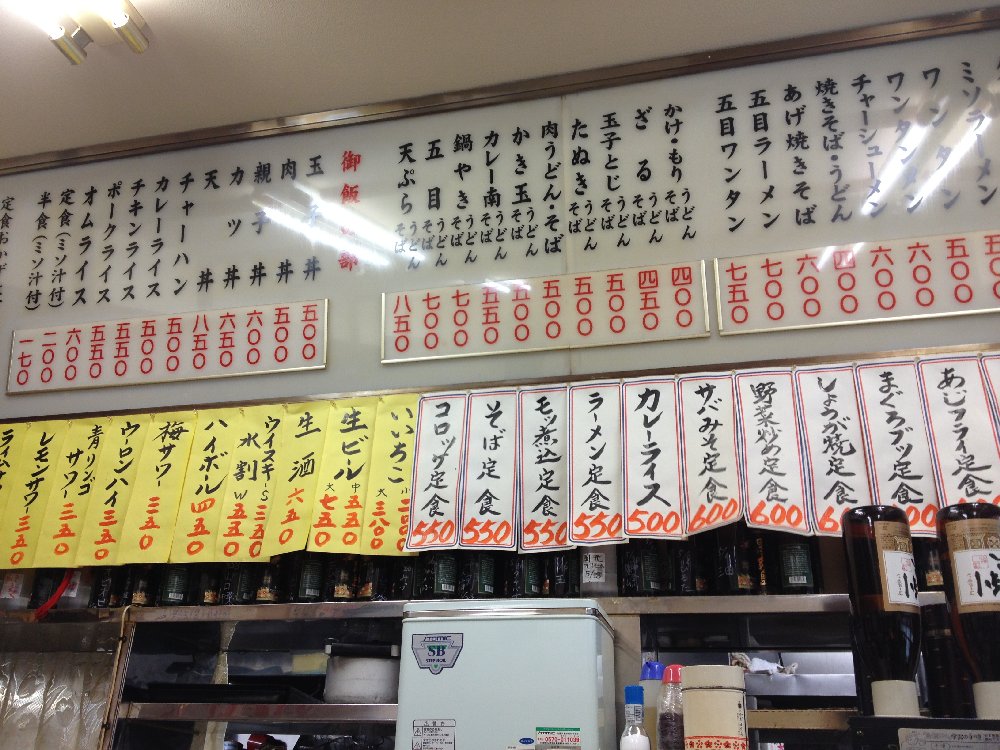 ミソラーメン
ワンタン
ワンタンメン
チャーシューメン
焼きそば・うどん
あげ焼きそば
五目ラーメン
五目ワンタン
六〇〇
六〇〇
七〇〇
七〇〇
七五〇
かけ・もり うどん そば
ざる うどん そば
玉子とじ うどん そば
たぬき うどん そば
肉うどん・そば
かき玉 うどん そば
カレー南 うどん そば
鍋やき うどん そば
五目 うどん そば
天ぷら うどん そば
四〇〇
四五〇
五〇〇
五〇〇
五〇〇
五〇〇
五五〇
七〇〇
七〇〇
八五〇
御飯の部
玉子丼
肉丼
親子丼
カツ丼
天丼
チャーハン
カレーライス
チキンライス
ポークライス
オムライス
定食(ミソ汁付)
半食(ミソ汁付)
五〇〇
五〇〇
六〇〇
六五〇
八五〇
五〇〇
五〇〇
五五〇
五五〇
六〇〇
二〇〇
一七〇
あじフライ定食
まぐろブツ定食
しょうが焼定食
野菜炒め定食 600
サバみそ定食 600
カレーライス 500
ラーメン定食 550
モツ煮込定食 550
そば定食 550
コロッケ定食 550
いいちこ 小 大 三八〇
生ビール 中 五五〇 大 七五〇
生酒 六五〇
ウイスキー水割 S 三五〇 W 五五〇
ハイボール 四五〇
梅サワー 三五〇
ウーロンハイ 三五〇
青リンゴサワー 三五〇
レモンサワー 三五〇
SB
0570-011039